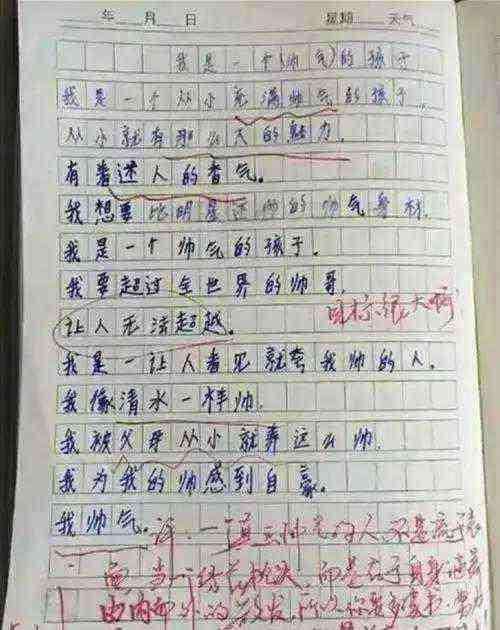 年 月 日 星期 天气
我是一个(帅气)的孩子
我是一个从小充满帅气的孩子。
从小就有那么大的魅力。
有着迷人的香气。
我想要比明星还帅的帅气身材.
我是一个帅气的孩子.
我要超过全世界的帅哥.
让人无法超越.
目标很大啊
我是一让人看见就夸我帅的人.
我像清水一样帅.
我被父母从小就养这么帅.
我为我的帅感到自豪.
我帅气。
评:一直正帅气的人,不是流于表
面,当一个绣花枕头,而是在于自身
由内部外的散发,所以你要多读书